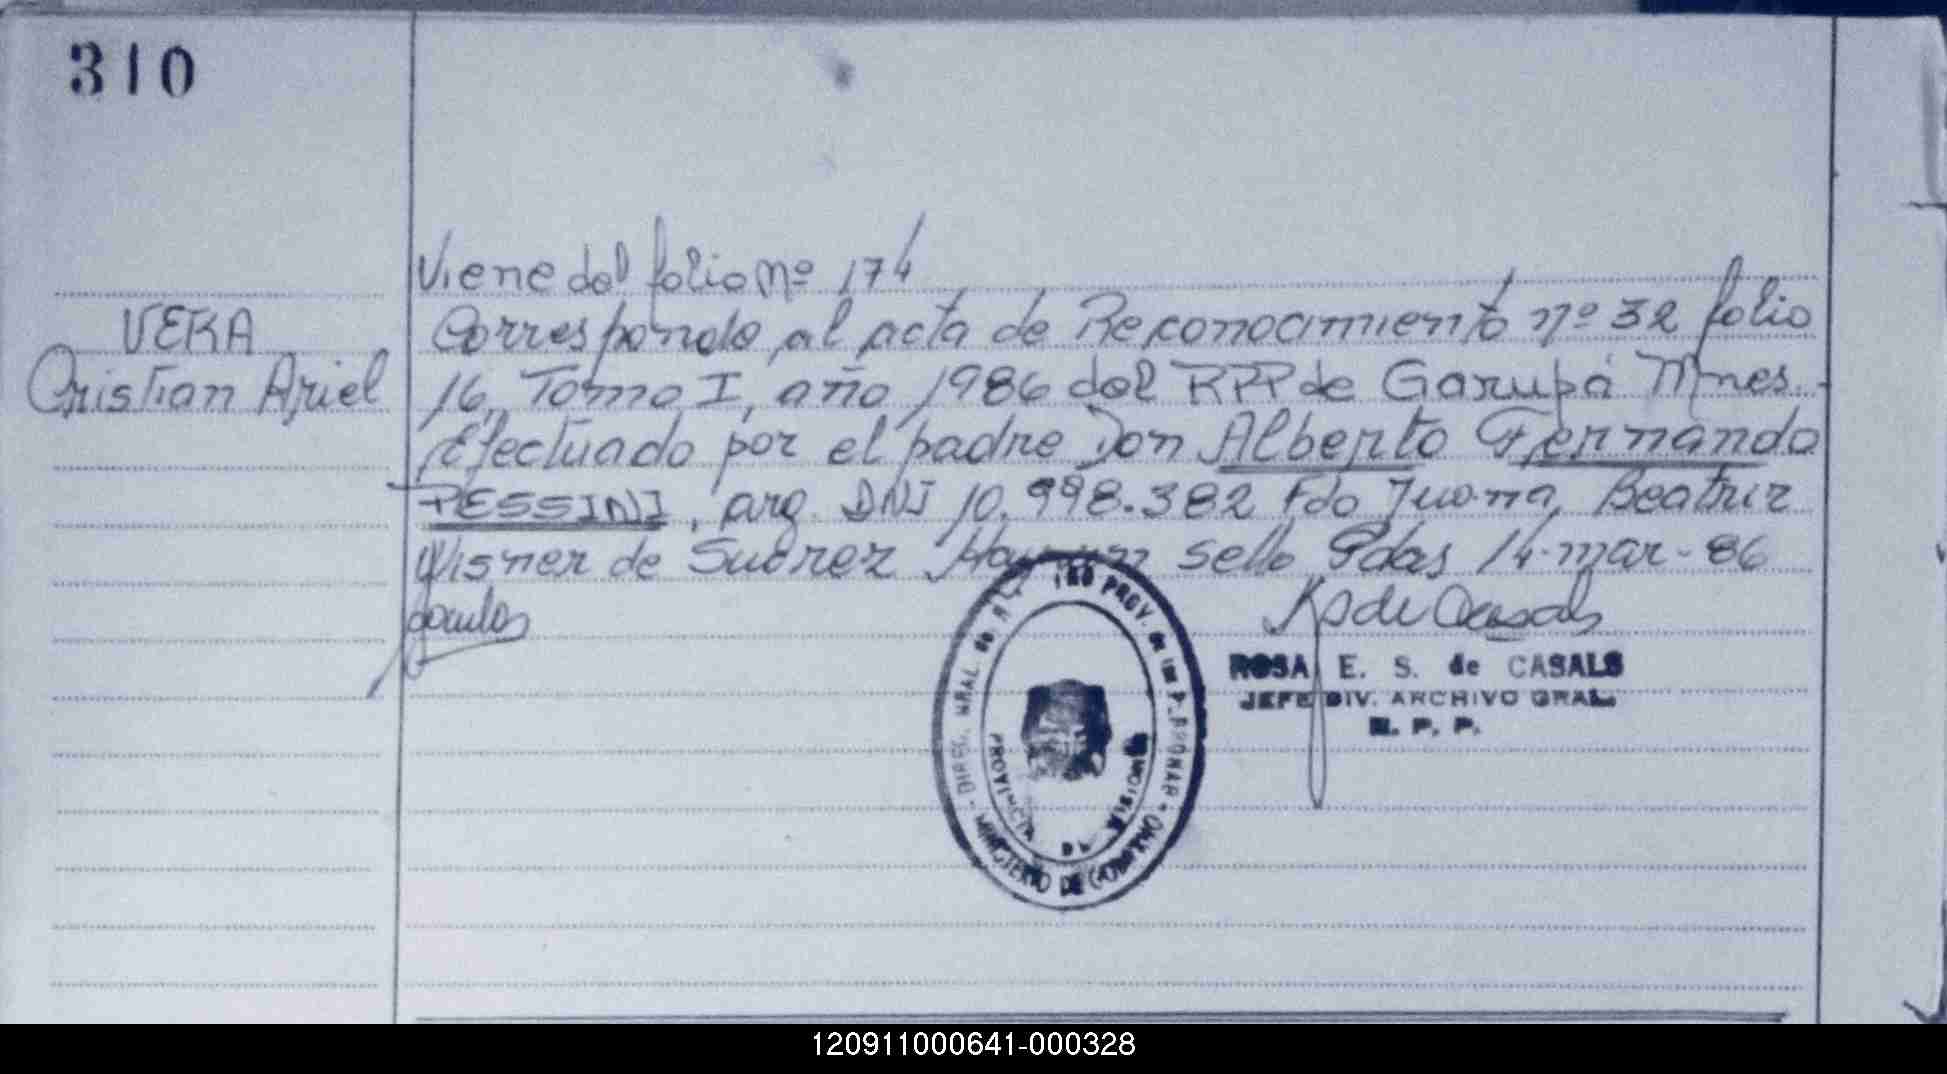 310
Viene del folio nº 174
VERA
Cristian Ariel
Corresponde al acta de Reconocimiento nº 32 folio
16, Tomo I, año 1986 del RPP de Garupá Mnes.
Efectuado por el padre Don Alberto Fernando
PESSINI, arg. DNI 10.998.382 Fdo Juana Beatriz
Wisner de Suárez Hay un sello Pdas 14-mar-86
ROSA E. S. de CASALS
JEFE DIV. ARCHIVO GRAL.
R. P. P.
PROV. de las P.
DIREC. GRAL. de
MINISTERIO DE GOBIERNO
PROVINCIA DE MISIONES
120911000641-000328